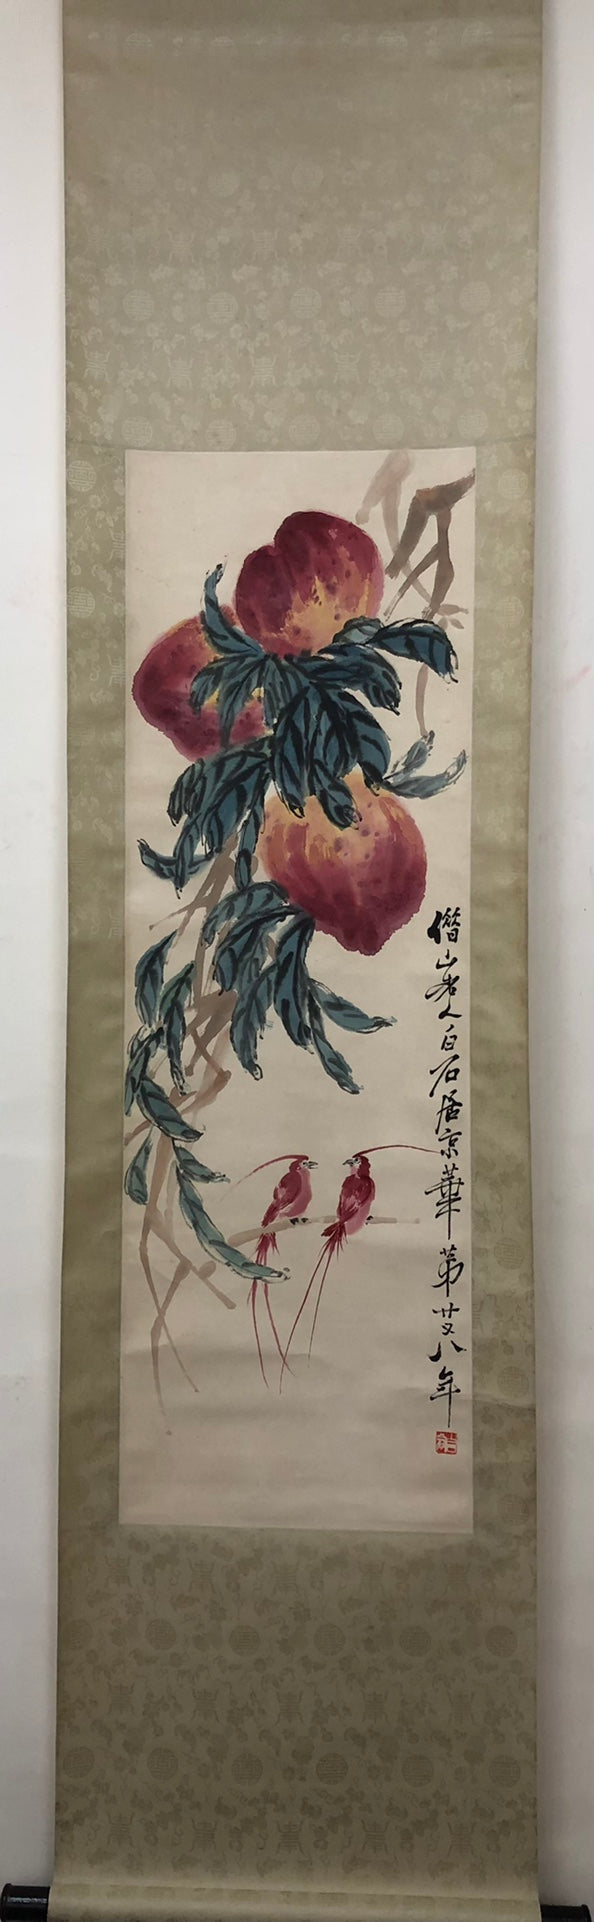 僭山老人白石居京華第廿八年